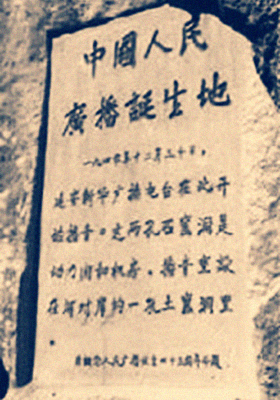 中國人民
廣播誕生地
一九四〇年十二月三十日,
延安新华广播电台在此开
始播音。这两孔石窰洞是
动力间和机房。播音室設
在河对岸的一孔土窰洞里
。
人民广播诞生四十周年